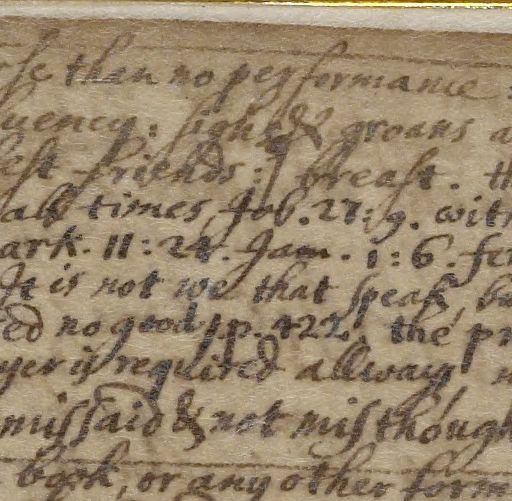 rse than no performanse :
luency : sighs & groans a
best friends : breast . th
all times Job. 27 : 9 . with
ark . 11 : 24 . Jam . 1 : 6 . fer
It is not we that speak, bu
ed no good pp. 422 the pr
yer is required allways n
missaid & not misthough
book, or any other form